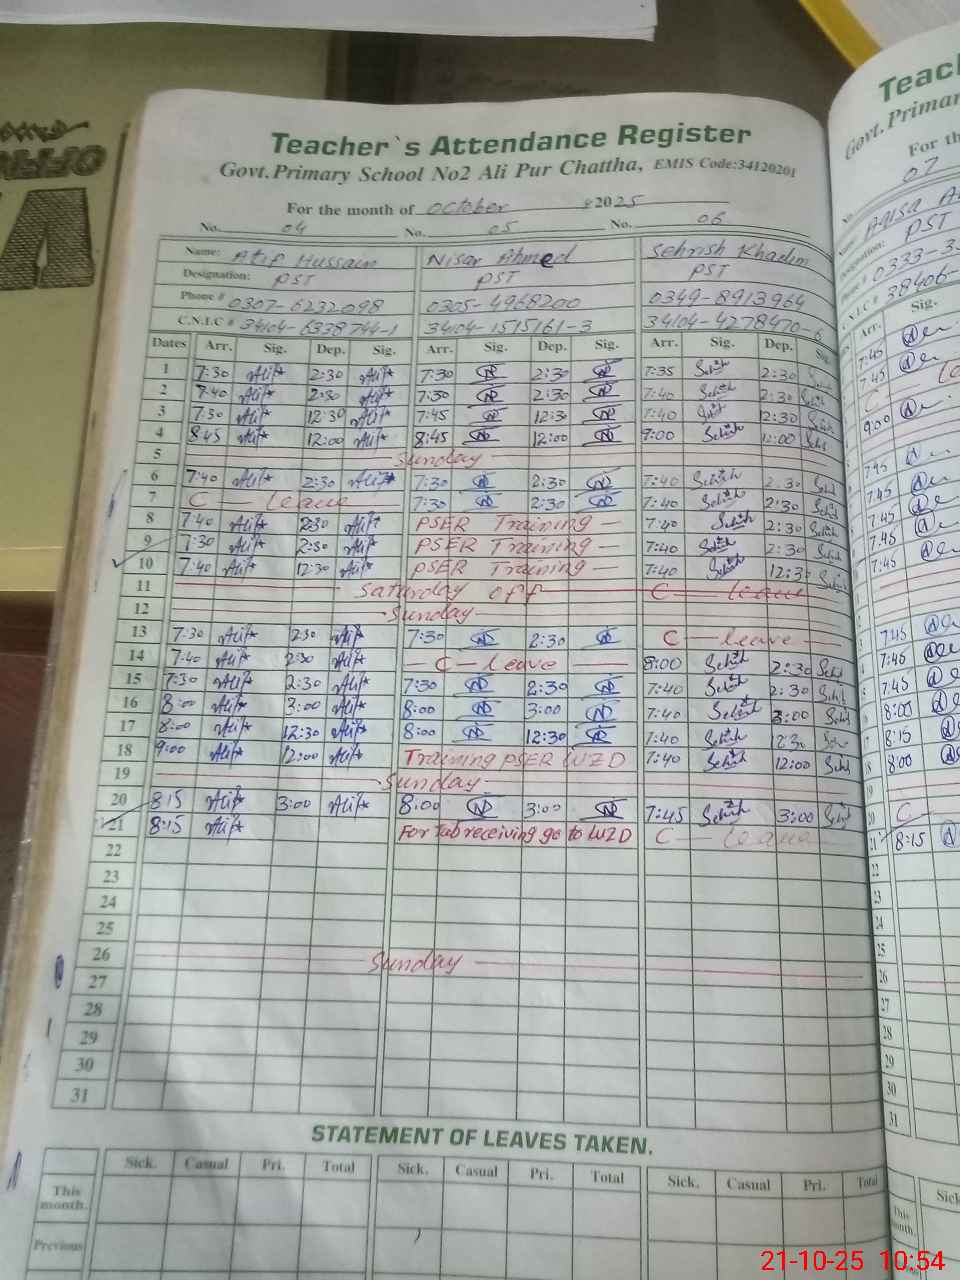 Teacher`s Attendance Register
Govt.Primary School No2 Ali Pur Chattha, EMIS Code:34120201
For the month of October 2025
No. 04 No. 05 No. 06
Name: Atif Hussain Nisar Ahmed Sehrish Khadim
Designation: PST PST PST
Phone # 0307-6232098 0305-4968200 0349-8913964
C.N.I.C # 34104-6338744-1 34104-1515161-3 34104-4278470-6
Dates Arr. Sig. Dep. Sig. Arr. Sig. Dep. Sig. Arr. Sig. Dep. Sig.
1 7:30 Atif 2:30 Atif 7:30 2:30 7:35 2:30
2 7:40 Atif 2:30 Atif 7:30 2:30 7:40 2:30
3 7:30 Atif 12:30 Atif 7:45 12:30 7:40 12:30
4 8:45 Atif 12:00 Atif 8:45 12:00 9:00 12:00
5 Sunday
6 7:40 Atif 2:30 Atif 7:30 2:30 7:40 2:30
7 C - leave 7:30 2:30 7:40 2:30
8 7:40 Atif 2:30 Atif PSER Training 7:40 2:30
9 7:30 Atif 2:30 Atif PSER Training 7:40 2:30
10 7:40 Atif 12:30 Atif PSER Training 7:40 12:30
11 Saturday off C - leave
12 Sunday
13 7:30 Atif 2:30 Atif 7:30 2:30 C - leave
14 7:40 Atif 2:30 Atif C - leave 8:00 2:30
15 7:30 Atif 2:30 Atif 7:30 2:30 7:40 2:30
16 8:00 Atif 3:00 Atif 8:00 3:00 7:40 3:00
17 8:00 Atif 12:30 Atif 8:00 12:30 7:40 12:30
18 9:00 Atif 12:00 Atif Training PSER WZD 7:40 12:00
19 Sunday
20 8:15 Atif 3:00 Atif 8:00 3:00 7:45 3:00
21 8:15 Atif For Tab receiving go to WZD C - leave
22
23
24
25
26 Sunday
27
28
29
30
31
STATEMENT OF LEAVES TAKEN.
Sick. Casual Pri. Total Sick. Casual Pri. Total Sick. Casual Pri. Total
This month.
Previous
Govt. Primar
For th
07
PST
0333-3
38406-
Arr. Sig.
7:45
7:45
C
9:00
7:45
7:45
7:45
7:45
7:45
7:45
7:45
7:45
8:00
8:15
8:00
C
8:15
21-10-25 10:54